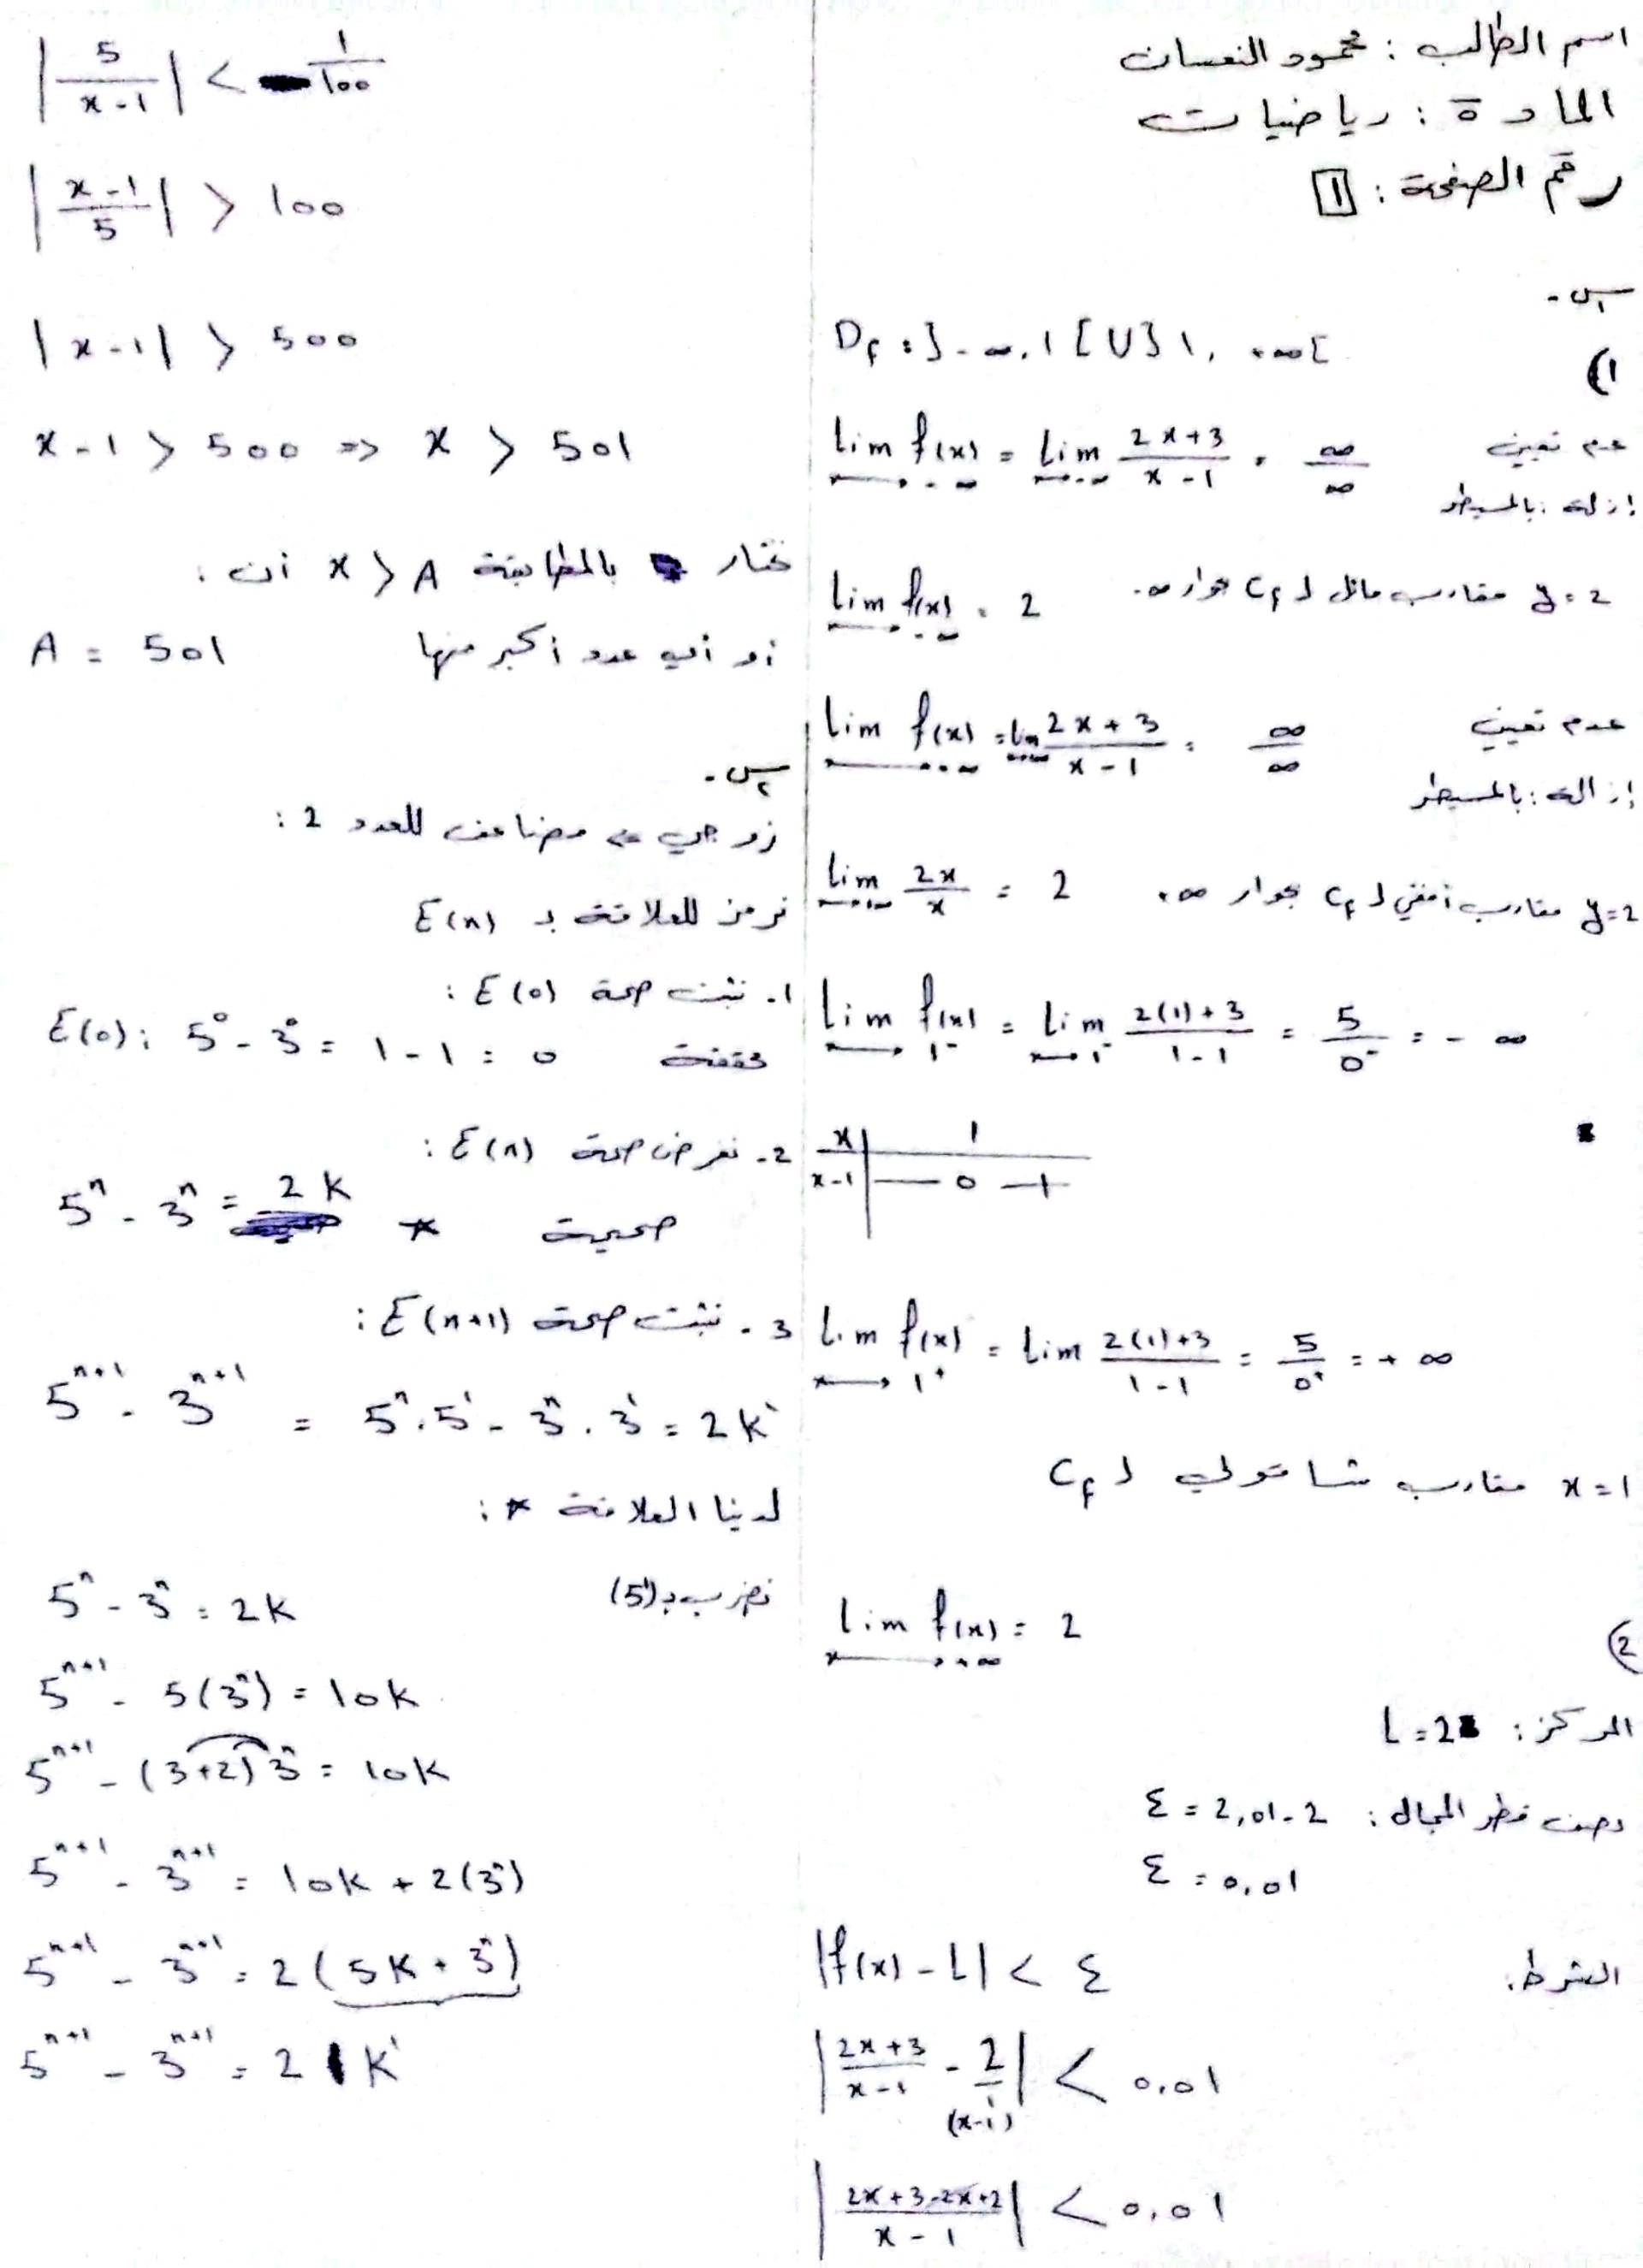 اسم الطالب : محمود النعسان
المادة : رياضيات
رقم الصفحة : 1
س1 -
1) D_f : ]-∞, 1[ ∪ ]1, +∞[
lim_{x→-∞} f(x) = lim_{x→-∞} (2x+3)/(x-1) = ∞/∞ عدم تعيين
إزالة : بالمسيطر
lim_{x→-∞} f(x) = 2 y=2 مقارب مائل لـ C_f جوار -∞
lim_{x→+∞} f(x) = lim_{x→+∞} (2x+3)/(x-1) = ∞/∞ عدم تعيين
إزالة : بالمسيطر
lim_{x→+∞} 2x/x = 2 y=2 مقارب أفقي لـ C_f بجوار +∞
lim_{x→1⁻} f(x) = lim_{x→1⁻} (2(1)+3)/(1-1) = 5/0⁻ = -∞
x | 1
x-1 | — 0 +
lim_{x→1⁺} f(x) = lim (2(1)+3)/(1-1) = 5/0⁺ = +∞
x=1 مقارب شاقولي لـ C_f
② lim_{x→+∞} f(x) = 2
المركز : L=2
نصف قطر المجال : ε = 2,01-2
ε = 0,01
الشرط : |f(x) - L| < ε
|(2x+3)/(x-1) - 2/1| < 0,01
(x-1)
|(2x+3-2x+2)/(x-1)| < 0,01
|5/(x-1)| < 1/100
|(x-1)/5| > 100
|x-1| > 500
x-1 > 500 => x > 501
نختار بالمطابقة x > A أن :
A = 501 أو أي عدد أكبر منها
س2 -
زوجي => مضاعف للعدد 2 :
نرمز للعلاقة بـ E(n)
1- نثبت صحة E(0) :
E(0): 5⁰ - 3⁰ = 1 - 1 = 0 محققة
2- نفرض صحة E(n) :
5ⁿ - 3ⁿ = 2K * صحيحة
3- نثبت صحة E(n+1) :
5ⁿ⁺¹ - 3ⁿ⁺¹ = 5ⁿ.5¹ - 3ⁿ.3¹ = 2K'
لدينا العلاقة * :
5ⁿ - 3ⁿ = 2K نضرب بـ (5¹)
5ⁿ⁺¹ - 5(3ⁿ) = 10K
5ⁿ⁺¹ - (3+2)3ⁿ = 10K
5ⁿ⁺¹ - 3ⁿ⁺¹ = 10K + 2(3ⁿ)
5ⁿ⁺¹ - 3ⁿ⁺¹ = 2(5K + 3ⁿ)
5ⁿ⁺¹ - 3ⁿ⁺¹ = 2K'